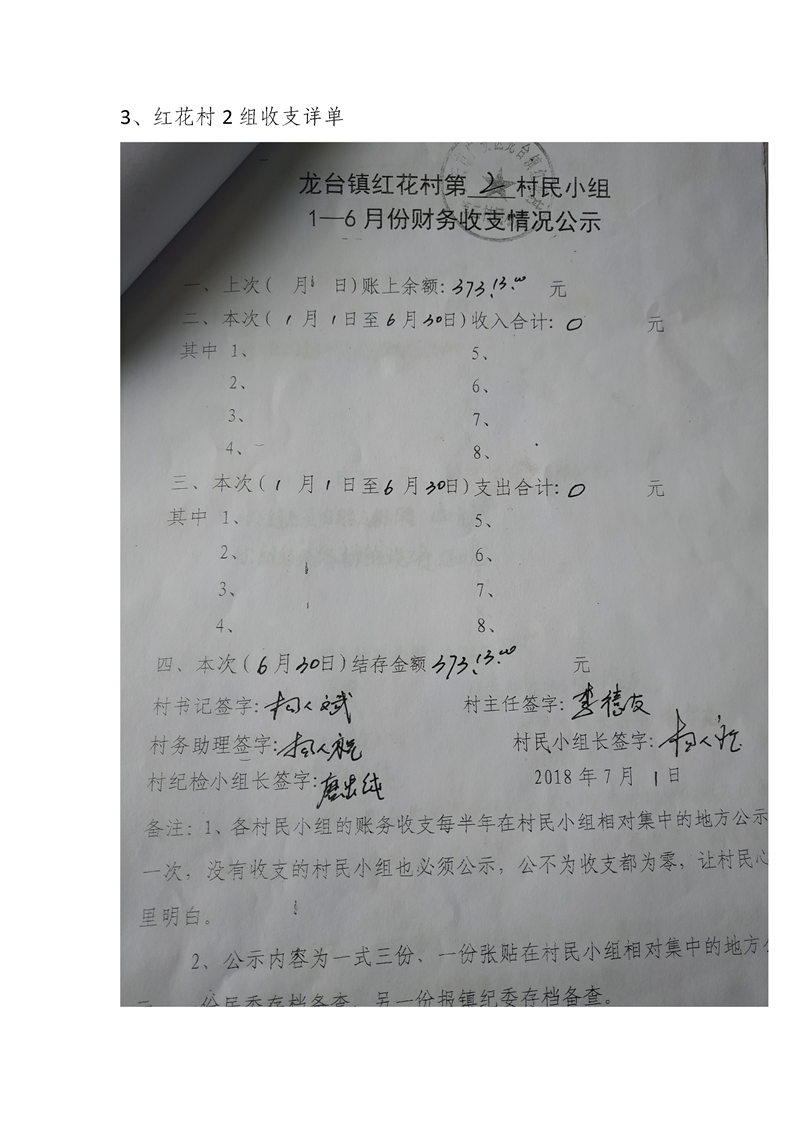 3、红花村 2 组收支详单
龙台镇红花村第 2 村民小组
1—6 月份财务收支情况公示
一、上次( 月 日)账上余额: 37313.00 元
二、本次( 1 月 1 日至 6 月 30 日)收入合计: 0 元
其中 1、 5、
2、 6、
3、 7、
4、 8、
三、本次( 1 月 1 日至 6 月 30 日)支出合计: 0 元
其中 1、 5、
2、 6、
3、 7、
4、 8、
四、本次( 6 月 30 日)结存金额 37313.00 元
村书记签字: 村主任签字: 李德友
村务助理签字: 村民小组长签字:
村纪检小组长签字: 2018 年 7 月 1 日
备注: 1、各村民小组的账务收支每半年在村民小组相对集中的地方公示
一次，没有收支的村民小组也必须公示，公不为收支都为零，让村民心
里明白。
2、公示内容为一式三份、一份张贴在村民小组相对集中的地方
份居委存档备查，另一份报镇纪委存档备查。